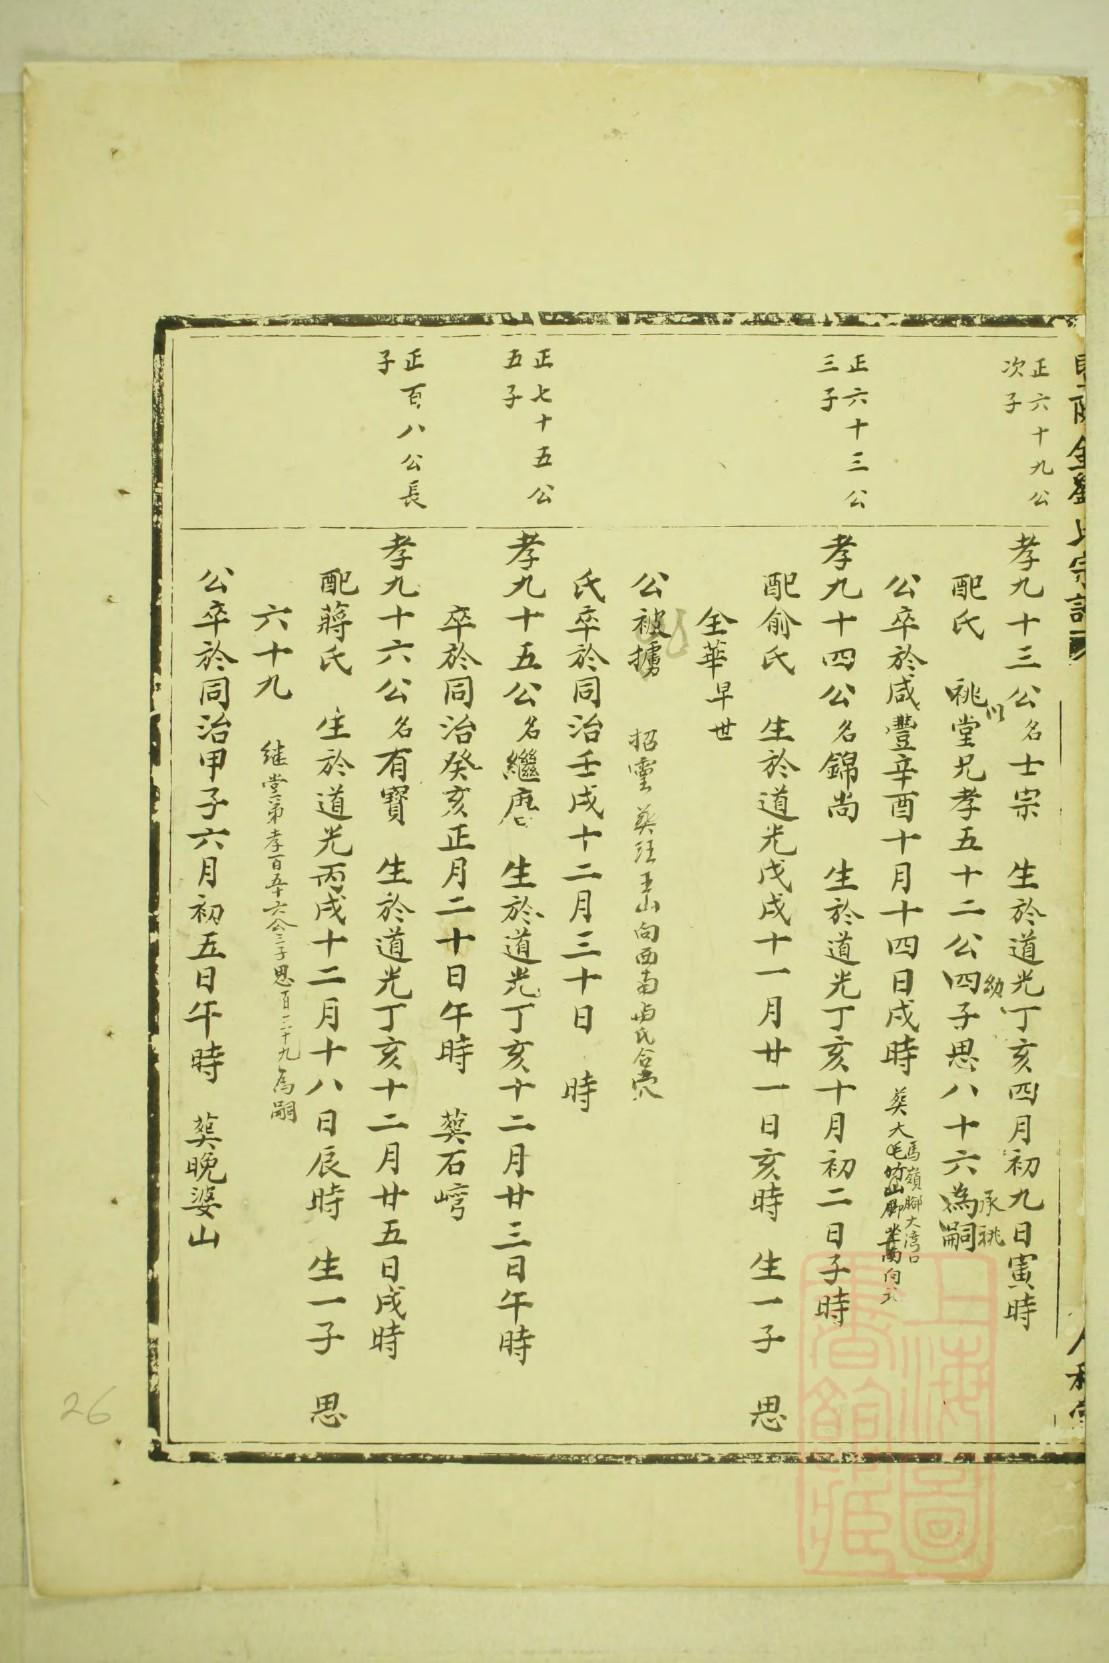 金劉氏宗譜
正六十九公
次子
孝九十三公名士宗 生於道光丁亥四月初九日寅時
配氏 以祧堂兄孝五十二公四子思八十六為嗣
幼
承祧
公卒於咸豐辛酉十月十四日戌時 葬大毛竹山腳
馬嶺腳大湾口
正六十三公
三子
孝九十四公名錦尚 生於道光丁亥十月初二日子時
配俞氏 生於道光戊戌十一月廿一日亥時 生一子 思
全華早世
公被擄 招靈葬汪王山向西南與氏合穴
氏卒於同治壬戌十二月三十日 時
正七十五公
五子
孝九十五公名繼唐 生於道光丁亥十二月廿三日午時
卒於同治癸亥正月二十日午時 葬石崿
正百八公長
子
孝九十六公名有寶 生於道光丁亥十二月廿五日戌時
配蔣氏 生於道光丙戌十二月十八日辰時 生一子 思
六十九 继堂弟孝百五十六公三子思百二十九為嗣
公卒於同治甲子六月初五日午時 葬晚婆山
26
上海圖
書館藏